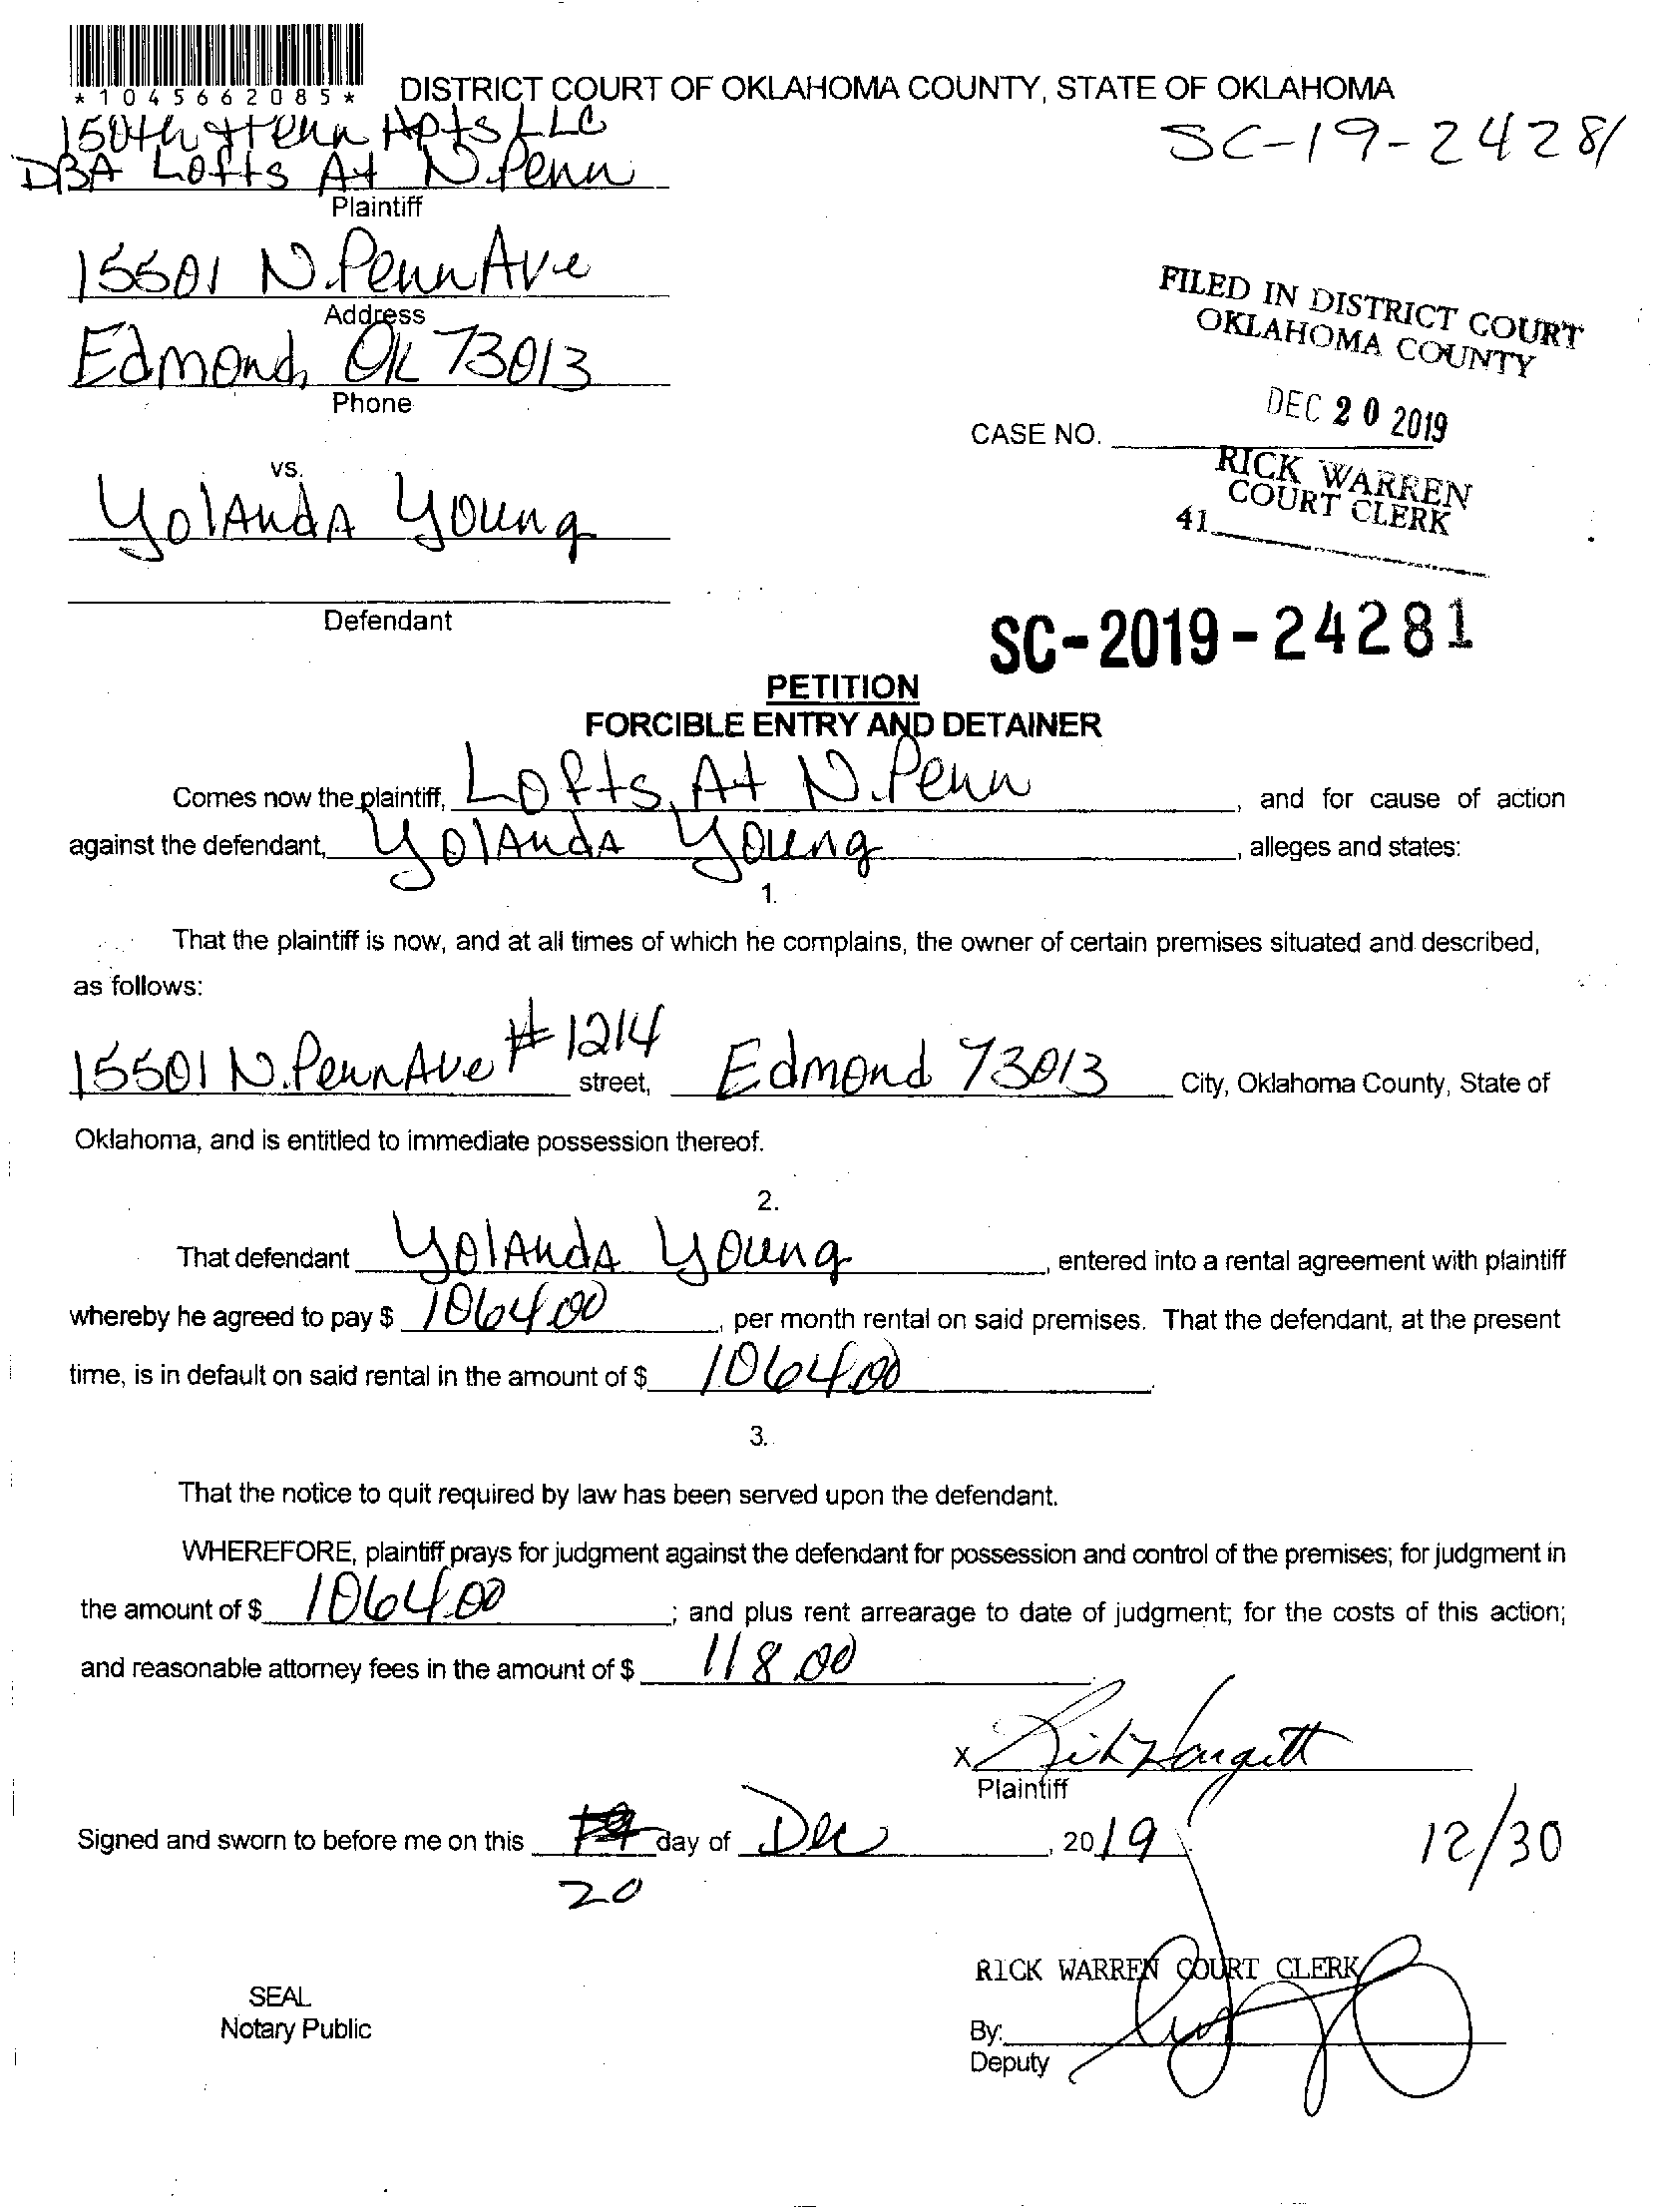 *1045662085*
DISTRICT COURT OF OKLAHOMA COUNTY, STATE OF OKLAHOMA
150th & Penn Apts LLC
SC-19-24281
DBA Lofts At N. Penn
Plaintiff
15501 N. Penn Ave
Address
FILED IN DISTRICT COURT
OKLAHOMA COUNTY
Edmond, OK 73013
Phone
DEC 20 2019
CASE NO.
RICK WARREN
COURT CLERK
41
vs.
Yolanda Young
Defendant
SC-2019-24281
PETITION
FORCIBLE ENTRY AND DETAINER
Comes now the plaintiff, Lofts At N. Penn, and for cause of action
against the defendant, Yolanda Young, alleges and states:
1.
That the plaintiff is now, and at all times of which he complains, the owner of certain premises situated and described,
as follows:
15501 N. Penn Ave #1214 street, Edmond 73013 City, Oklahoma County, State of
Oklahoma, and is entitled to immediate possession thereof.
2.
That defendant Yolanda Young, entered into a rental agreement with plaintiff
whereby he agreed to pay $ 1064.00, per month rental on said premises. That the defendant, at the present
time, is in default on said rental in the amount of $ 1064.00.
3.
That the notice to quit required by law has been served upon the defendant.
WHEREFORE, plaintiff prays for judgment against the defendant for possession and control of the premises; for judgment in
the amount of $ 1064.00; and plus rent arrearage to date of judgment; for the costs of this action;
and reasonable attorney fees in the amount of $ 118.00
X
Plaintiff
Signed and sworn to before me on this day of Dec, 2019
12/30
20
RICK WARREN COURT CLERK
SEAL
Notary Public
By:
Deputy